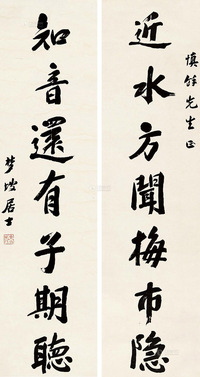 慎先生正
近水方聞梅市隐
知音還有子期聽
梦坡居士